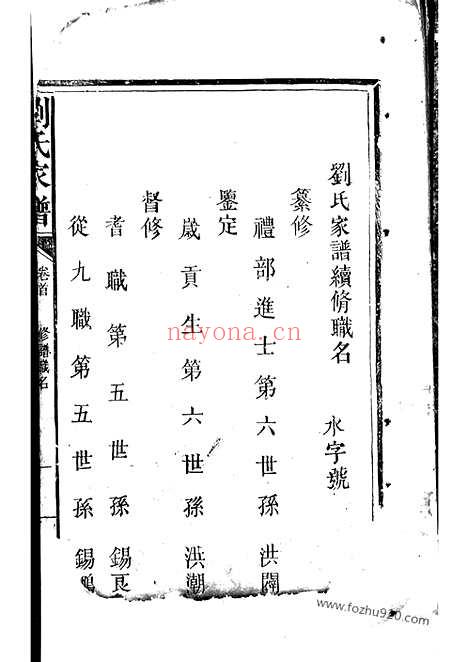 劉氏家譜續脩職名　水字號
纂修
禮部進士第六世孫洪闊
鑒定
歲貢生第六世孫洪潮
督修
耆職第五世孫錫良
從九職第五世孫錫
劉氏家譜
卷首
修譜職名
nayona.cn
www.fozhu920.com